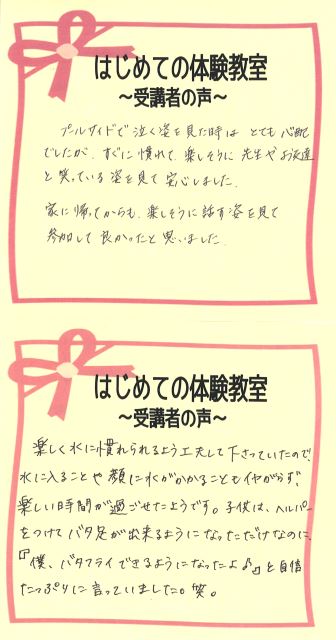 はじめての体験教室
～受講者の声～
プールサイドで泣く姿を見た時は とても心配
でしたが、すぐに慣れて、楽しそうに 先生や お友達
と笑っている姿を見て 安心しました。
家に帰ってからも、楽しそうに話す姿を見て
参加して 良かったと思いました。
はじめての体験教室
～受講者の声～
楽しく水に慣れられるよう工夫して下さっていたので、
水に入ることや顔に水がかかることもイヤがらず、
楽しい時間が過ごせたようです。子供は、ヘルパー
をつけてバタ足が出来るようになっただけなのに、
『僕、バタフライできるようになったよ♪』と自信
たっぷりに言っていました。笑。